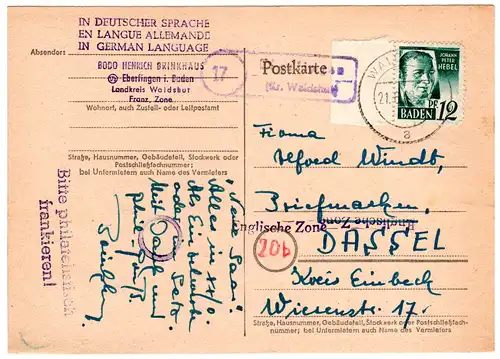 IN DEUTSCHER SPRACHE
EN LANGUE ALLEMANDE
IN GERMAN LANGUAGE
Absender:
BODO HENRICH BRINKHAUS
Eberfingen i. Baden
Landkreis Waldshut
Franz. Zone
Wohnort, auch Zustell- oder Leitpostamt
Straße, Hausnummer, Gebäudeteil, Stockwerk oder
Postschließfachnummer;
bei Untermietern auch Name des Vermieters
17
Postkarte
(Kr. Waldshut)
WAL
21.
a
JOHANN
PETER
HEBEL
PF
BADEN 12
Firma
Alfred Windt,
Briefmarken,
Englische Zone
Englische Zone
DASSEL
20b
Kreis Einbeck
Wiesenstr. 17.
Straße, Hausnummer, Gebäudeteil, Stockwerk oder Postschließfach-
nummer; bei Untermietern auch Name des Vermieters
Bitte philatelistisch
frankieren!
"Neue Saar"
Alles in
als Einschreiben
oder Satz
Mit Dank